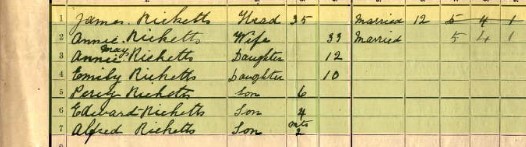 1 James Ricketts Head 35 Married 12 5 4 1
2 Annie Ricketts Wife 33 Married 5 4 1
3 Annie May Ricketts Daughter 12
4 Emily Ricketts Daughter 10
5 Percy Ricketts Son 6
6 Edward Ricketts Son 4
7 Alfred Ricketts Son 2